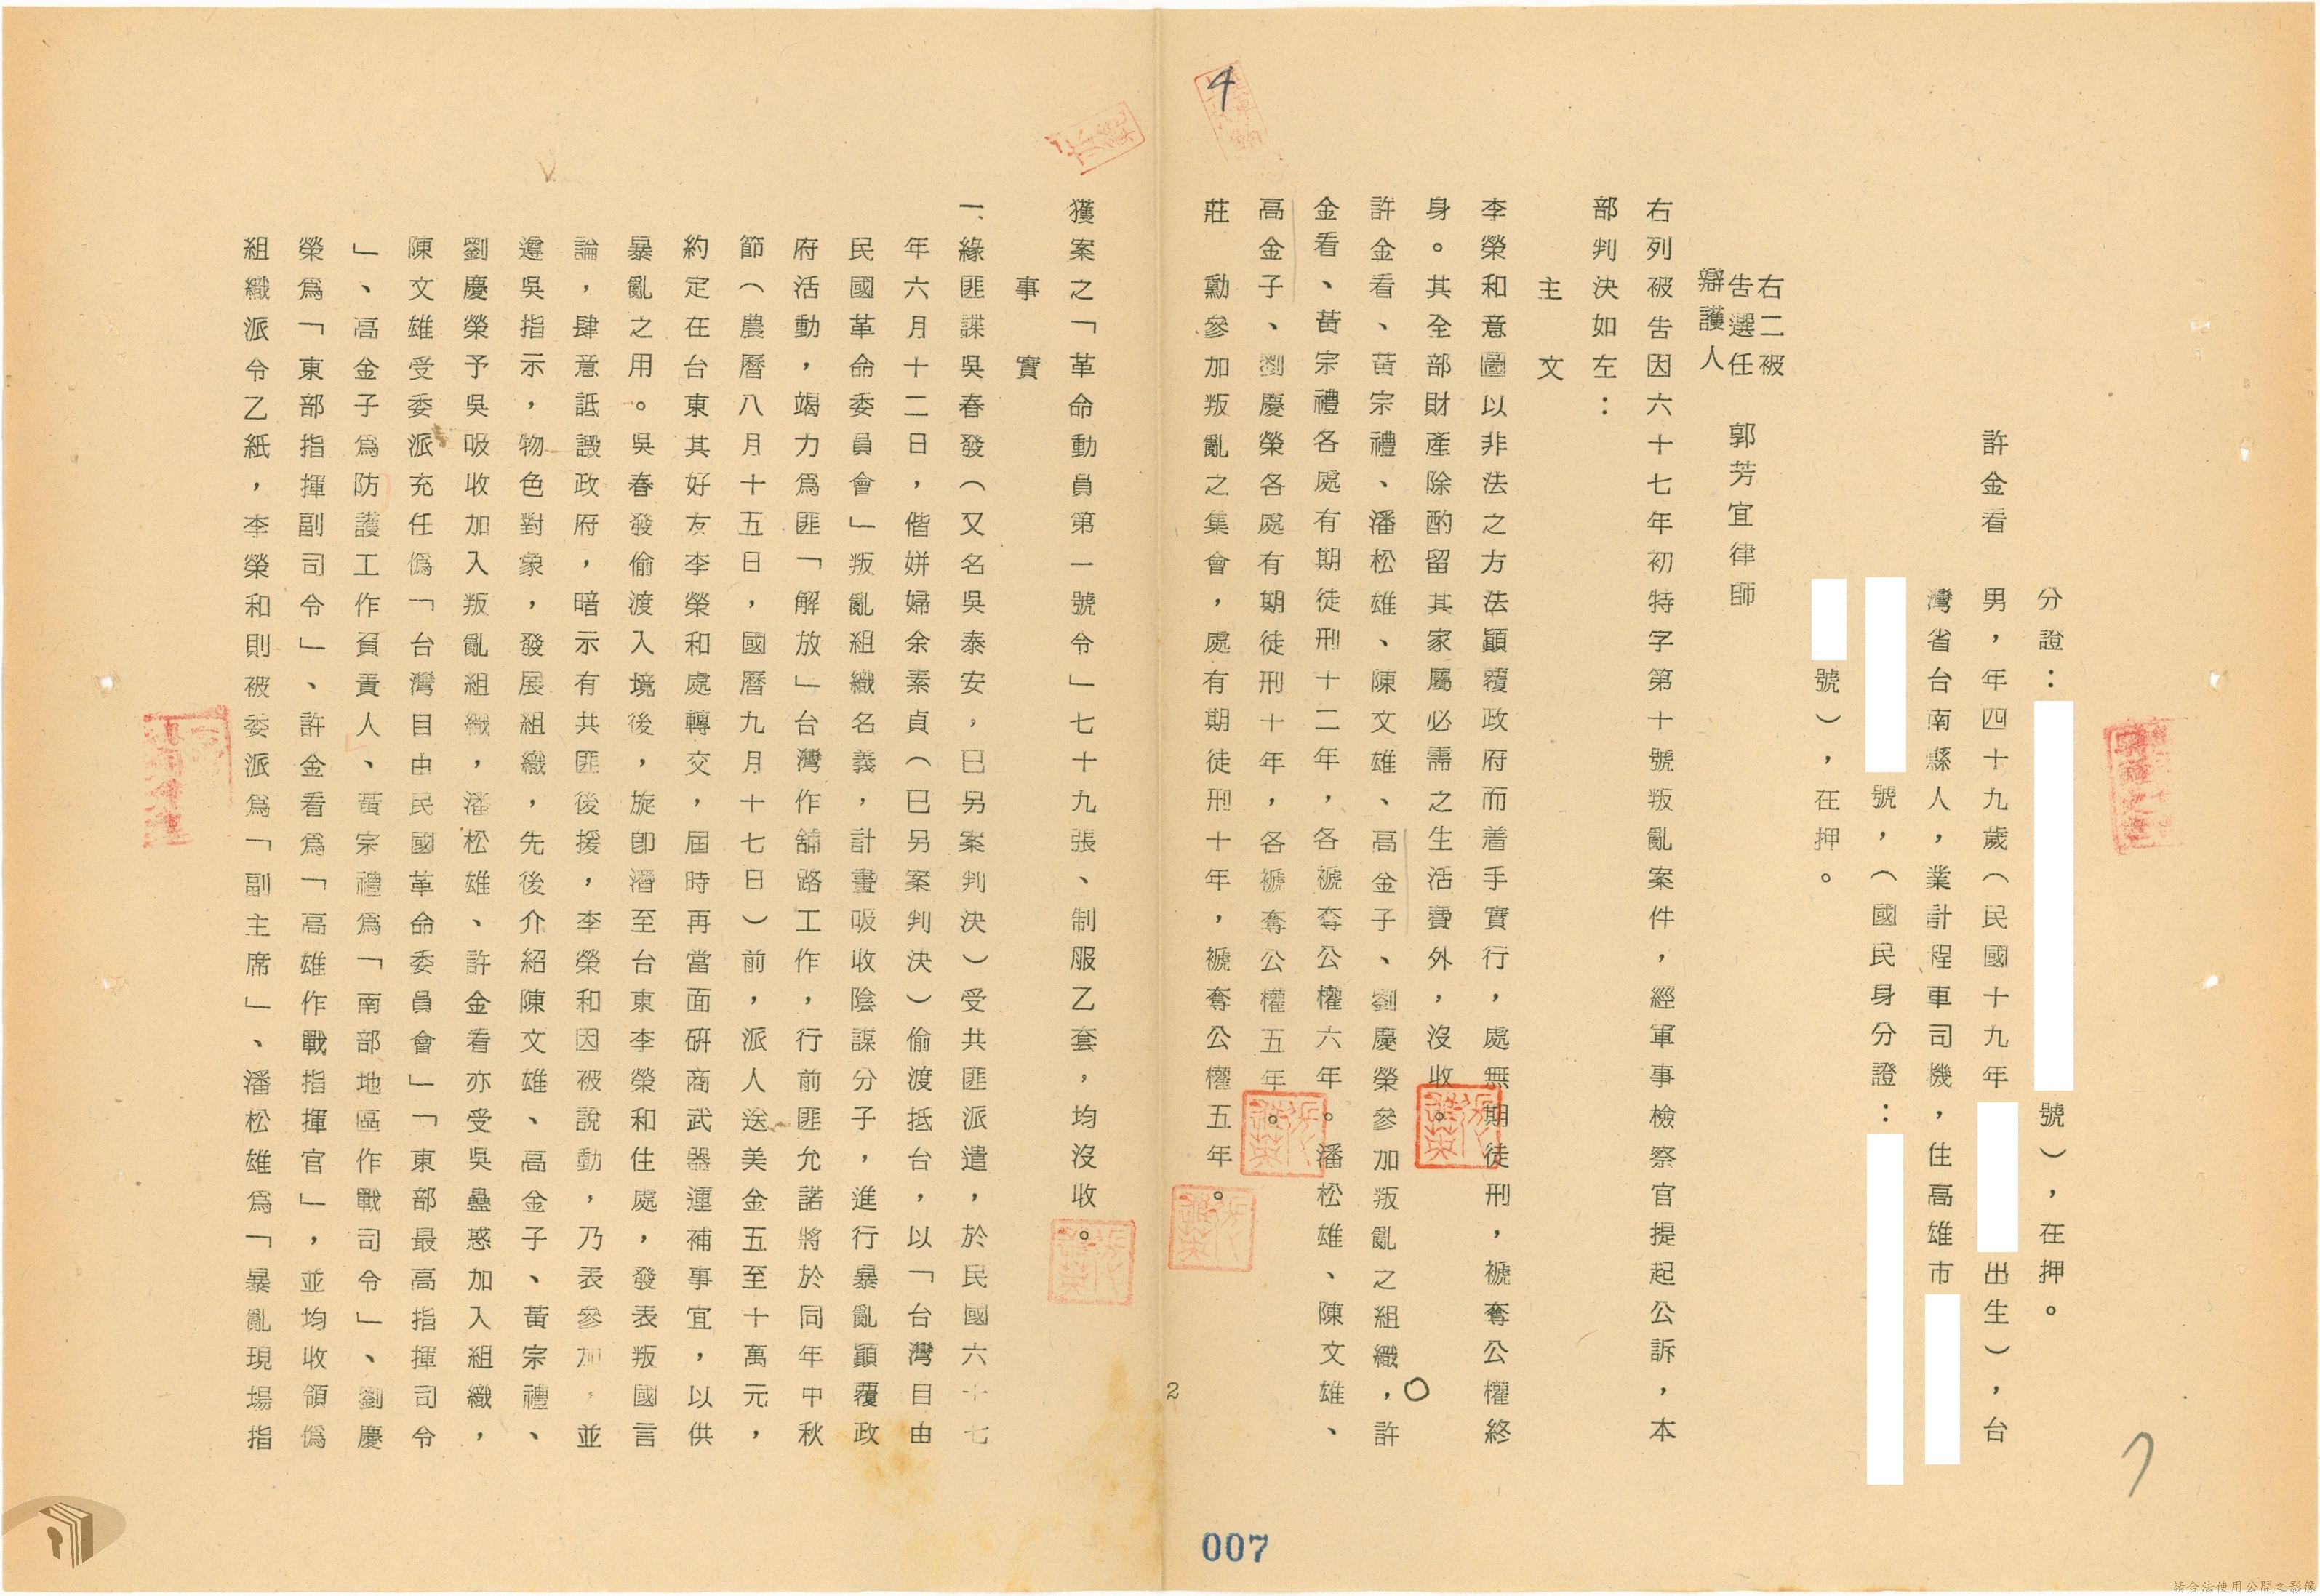 分證：號），在押。
許金看　男，年四十九歲（民國十九年出生），台
灣省台南縣人，業計程車司機，住高雄市
號，（國民身分證：
號），在押。
右二被
告選任　郭芳宜律師
辯護人
右列被告因六十七年初特字第十號叛亂案件，經軍事檢察官提起公訴，本
部判決如左：
主　文
李榮和意圖以非法之方法顚覆政府而着手實行，處無期徒刑，褫奪公權終
身。其全部財產除酌留其家屬必需之生活費外，沒收。
許金看、黃宗禮、潘松雄、陳文雄、高金子、劉慶榮參加叛亂之組織，許
金看、黃宗禮各處有期徒刑十二年，各褫奪公權六年。潘松雄、陳文雄、
高金子、劉慶榮各處有期徒刑十年，各褫奪公權五年。
莊　勳參加叛亂之集會，處有期徒刑十年，褫奪公權五年。
4
2
獲案之「革命動員第一號令」七十九張、制服乙套，均沒收。
事　實
一、緣匪諜吳春發（又名吳泰安，已另案判決）受共匪派遣，於民國六十七
年六月十二日，偕姘婦余素貞（已另案判決）偷渡抵台，以「台灣自由
民國革命委員會」叛亂組織名義，計畫吸收陰謀分子，進行暴亂顚覆政
府活動，竭力爲匪「解放」台灣作舖路工作，行前匪允諾將於同年中秋
節（農曆八月十五日，國曆九月十七日）前，派人送美金五至十萬元，
約定在台東其好友李榮和處轉交，屆時再當面硏商武器運補事宜，以供
暴亂之用。吳春發偷渡入境後，旋卽潛至台東李榮和住處，發表叛國言
論，肆意詆譭政府，暗示有共匪後援，李榮和因被說動，乃表參加，並
遵吳指示，物色對象，發展組織，先後介紹陳文雄、高金子、黃宗禮、
劉慶榮予吳吸收加入叛亂組織，潘松雄、許金看亦受吳蠱惑加入組織，
陳文雄受委派充任僞「台灣自由民國革命委員會」「東部最高指揮司令
」、高金子爲防護工作負責人、黃宗禮爲「南部地區作戰司令」、劉慶
榮爲「東部指揮副司令」、許金看爲「高雄作戰指揮官」，並均收領僞
組織派令乙紙，李榮和則被委派爲「副主席」、潘松雄爲「暴亂現場指
007
請合法使用公開之影像